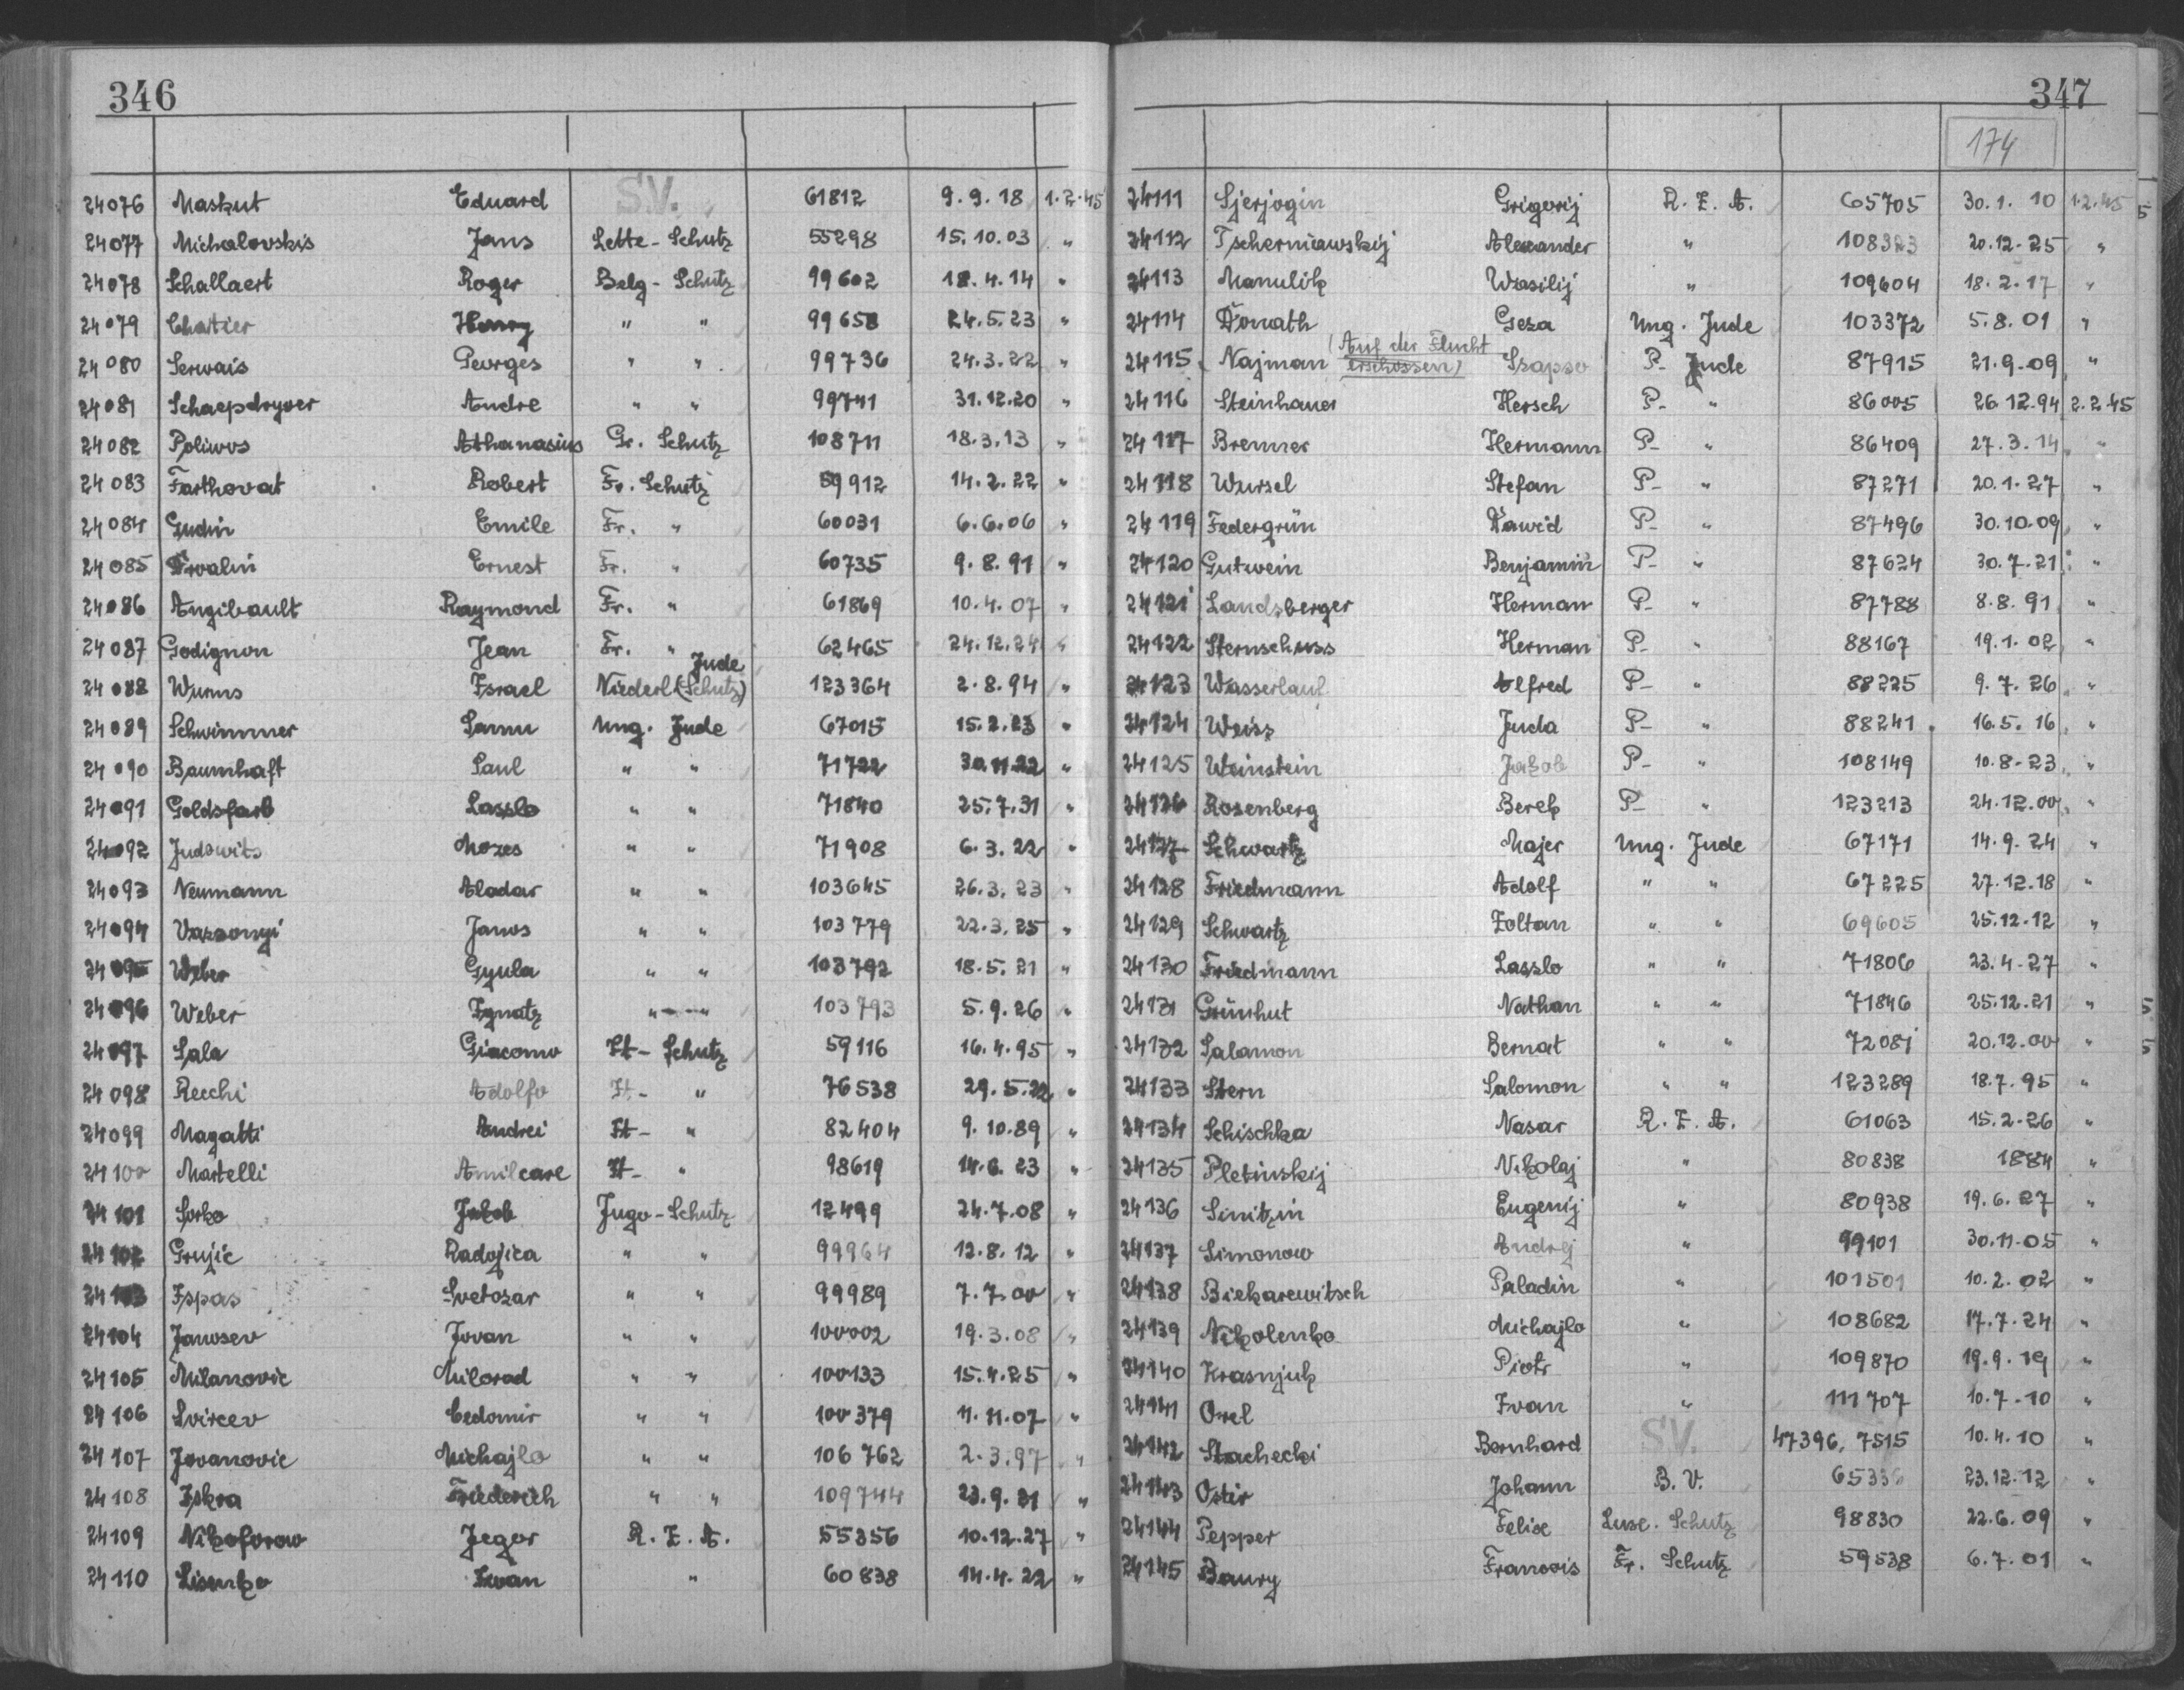 346
24076 Maskut Eduard S.V. 61812 9.9.18 1.2.45
24077 Michalovskis Jans Lette-Schutz 55298 15.10.03 "
24078 Schallaert Roger Belg-Schutz 99602 18.4.14 "
24079 Chatier Henry " " 99658 24.5.23 "
24080 Servais Georges " " 99736 24.3.22 "
24081 Schaepdryver Andre " " 99741 31.12.20 "
24082 Poliwos Athanasius Gr. Schutz 108711 18.3.13 "
24083 Farthovat Robert Fr. Schutz 59912 14.2.22 "
24084 Gudin Emile Fr. " 60031 6.6.06 "
24085 Drvalin Ernest Fr. " 60735 9.8.91 "
24086 Angibault Raymond Fr. " 61869 10.4.07 "
24087 Godignon Jean Fr. " 62465 24.12.24 "
24088 Wurms Israel Niederl (Schutz) Jude 123364 2.8.94 "
24089 Schwimmer Samu Ung. Jude 67015 15.2.23 "
24090 Baumhaft Paul " " 71722 30.11.22 "
24091 Goldsfarb Lasslo " " 71840 25.7.31 "
24092 Judowits Mozes " " 71908 6.3.22 "
24093 Neumann Aladar " " 103645 26.3.23 "
24094 Vazsonyi Janos " " 103779 22.3.25 "
24095 Weber Gyula " " 103792 18.5.21 "
24096 Weber Ignatz " " 103793 5.9.26 "
24097 Sala Giacomo It-Schutz 59116 16.4.95 "
24098 Recchi Adolfo It- " 76538 29.5.22 "
24099 Magatti Andrei It- " 82404 9.10.89 "
24100 Martelli Amilcare It- " 98619 14.6.23 "
24101 Sorko Jakob Jugo-Schutz 12499 24.7.08 "
24102 Grujic Radojica " " 99964 12.8.12 "
24103 Ispas Svetozar " " 99989 7.7.00 "
24104 Janosev Jovan " " 100002 19.3.08 "
24105 Milanovic Milorad " " 100133 15.4.25 "
24106 Svircev Cedomir " " 100379 11.11.07 "
24107 Jovanovic Michajlo " " 106762 2.3.97 "
24108 Iskra Friederich " " 109744 23.9.31 "
24109 Nikoforow Jegor R.Z.A. 55356 10.12.27 "
24110 Lisenko Iwan " 60838 14.4.22 "
347
174
24111 Sjerjogin Grigorij R.Z.A. 65705 30.1.10 1.2.45
24112 Tscherniawskij Alexander " 108323 20.12.25 "
24113 Manulik Wasilij " 109604 18.2.17 "
24114 Donath Geza Ung. Jude 103372 5.8.01 "
24115 Najman (Auf der Flucht erschossen) Szapso P- Jude 87915 21.9.09 "
24116 Steinhauer Hersch P- " 86005 26.12.94 2.2.45
24117 Brenner Hermann P- " 86409 27.3.14 "
24118 Wursel Stefan P- " 87271 20.1.27 "
24119 Federgrün Dawid P- " 87496 30.10.09 "
24120 Gutwein Benjamin P- " 87624 30.7.21 "
24121 Landsberger Herman P- " 87788 8.8.91 "
24122 Sternschuss Herman P- " 88167 19.1.02 "
24123 Wasserlauf Alfred P- " 88225 9.7.26 "
24124 Weiss Juda P- " 88241 16.5.16 "
24125 Weinstein Jakob P- " 108149 10.8.23 "
24126 Rosenberg Berek P- " 123213 24.12.00 "
24127 Schwartz Majer Ung. Jude 67171 14.9.24 "
24128 Friedmann Adolf " " 67225 27.12.18 "
24129 Schwartz Zoltan " " 69605 25.12.12 "
24130 Friedmann Laszlo " " 71806 23.4.27 "
24131 Grünhut Nathan " " 71846 25.12.21 "
24132 Salamon Bernat " " 72081 20.12.00 "
24133 Stern Salomon " " 123289 18.7.95 "
24134 Schischka Nasar R.Z.A. 61063 15.2.26 "
24135 Pletinskij Nikolaj " 80838 1884 "
24136 Sinitzin Eugenij " 80938 19.6.27 "
24137 Simonow Andrej " 99101 30.11.05 "
24138 Biekarewitsch Paladin " 101501 10.2.02 "
24139 Nikolenko Michajlo " 108682 17.7.24 "
24140 Krasnjuk Piotr " 109870 19.9.19 "
24141 Orel Ivan " 111707 10.7.10 "
24142 Stachecki Bernhard S.V. 47396, 7515 10.4.10 "
24143 Ostir Johann B.V. 65336 23.12.12 "
24144 Pepper Felix Luxe. Schutz 98830 22.6.09 "
24145 Baury Francois Fr. Schutz 59538 6.7.01 "